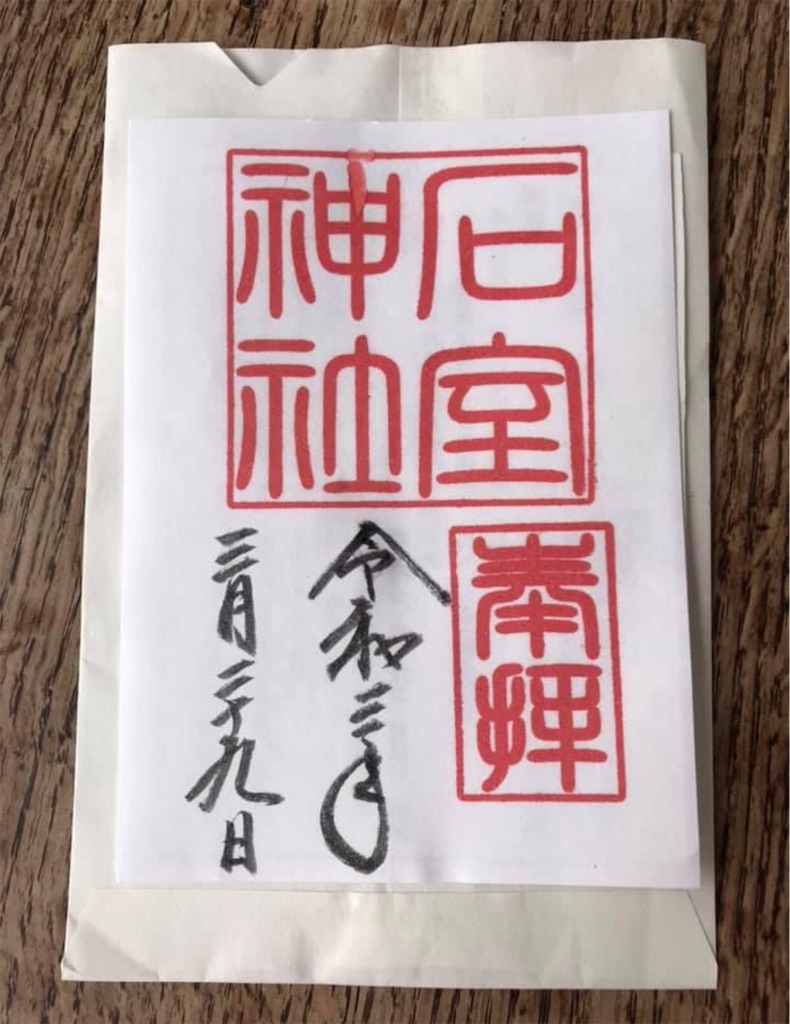 石室
神社
奉拝
令和三年
三月二十九日